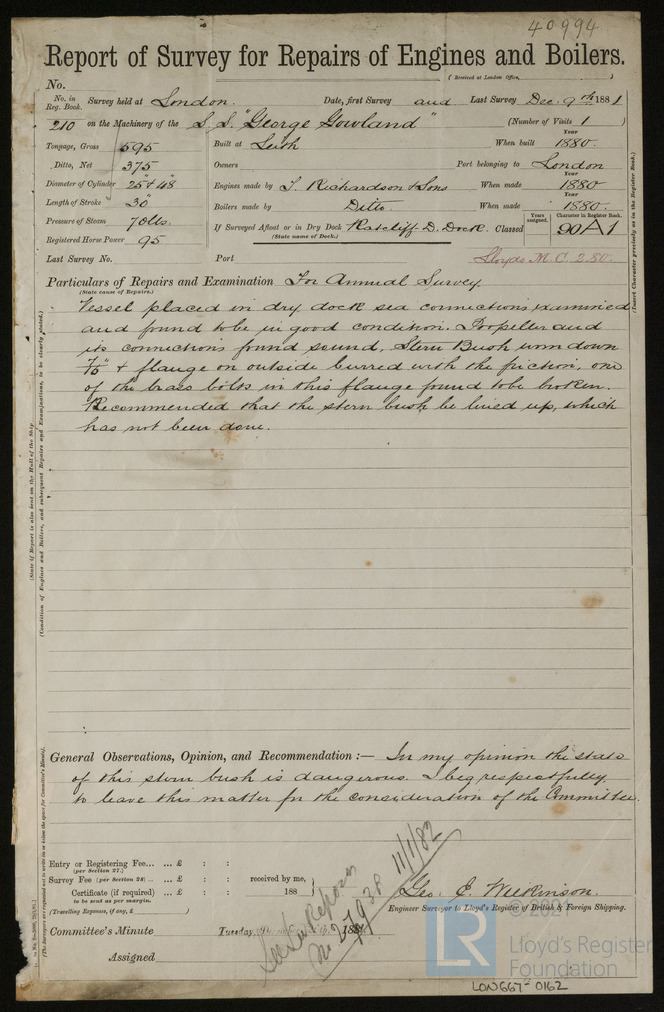 40994
Report of Survey for Repairs of Engines and Boilers.
No. (Received at London Office, )
No. in Reg. Book. Survey held at London. Date, first Survey and Last Survey Dec. 9th 1881
210 on the Machinery of the S.S. "George Gowland" (Number of Visits 1 )
Tonnage, Gross 595 Built at Leith When built Year 1880.
Ditto, Net 375 Owners Port belonging to London
Diameter of Cylinder 25" & 48" Engines made by T. Richardson & Sons When made Year 1880
Length of Stroke 30" Boilers made by Ditto When made Year 1880.
Pressure of Steam 70 lbs. If Surveyed Afloat or in Dry Dock Ratcliff D. Dock. Classed Years assigned. Character in Register Book. 90A1
(State name of Dock.)
Registered Horse Power 95
Last Survey No. Port Lloyds M.C. 2.80.
Particulars of Repairs and Examination For Annual Survey
(State cause of Repairs.)
Vessel placed in dry dock sea connections examined
and found to be in good condition. Propeller and
its connections found sound, Stern Bush worn down
7/16" & flange on outside burred with the friction, one
of the brass bolts in this flange found to be broken.
Recommended that the stern bush be lined up, which
has not been done.
(State if Report is also sent on the Hull of the Ship
(Condition of Engines and Boilers, and subsequent Repairs and Examinations, to be clearly stated.)
(Insert Character precisely as in the Register Book.)
General Observations, Opinion, and Recommendation :— In my opinion the state
of this stern bush is dangerous. I beg respectfully
to leave this matter for the consideration of the Committee.
(The Surveyors are requested not to write on or below the space for Committee's Minute).
Entry or Registering Fee... ... £ : :
(per Section 27.)
Survey Fee (per Section 28) ... ... £ : : received by me,
Certificate (if required) ... £ : : 188
to be sent as per margin.
(Travelling Expenses, if any, £ )
Geo. E. Wilkinson.
Engineer Surveyor to Lloyd's Register of British & Foreign Shipping.
Committee's Minute Tuesday, 188
Assigned
See Lon Report
No 27938
11/1/82
© 2021
LR
Lloyd's Register
Foundation
LON667-0162